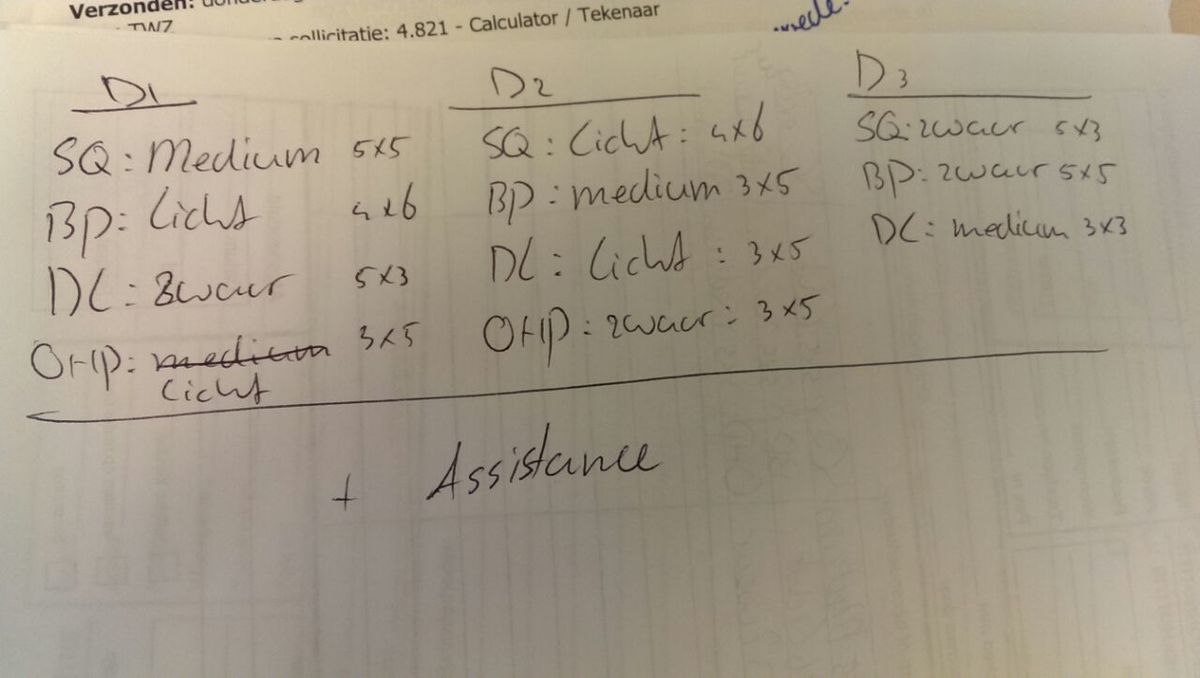 Verzonden:
TWZ
sollicitatie: 4.821 - Calculator / Tekenaar
D1
SQ: Medium 5x5
BP: Licht 4x6
DL: Zwaar 5x3
OHP: medium 3x5
Licht
D2
SQ: Licht: 4x6
BP: medium 3x5
DL: Licht: 3x5
OHP: zwaar: 3x5
D3
SQ: zwaar 5x3
BP: zwaar 5x5
DL: medium 3x3
+ Assistance